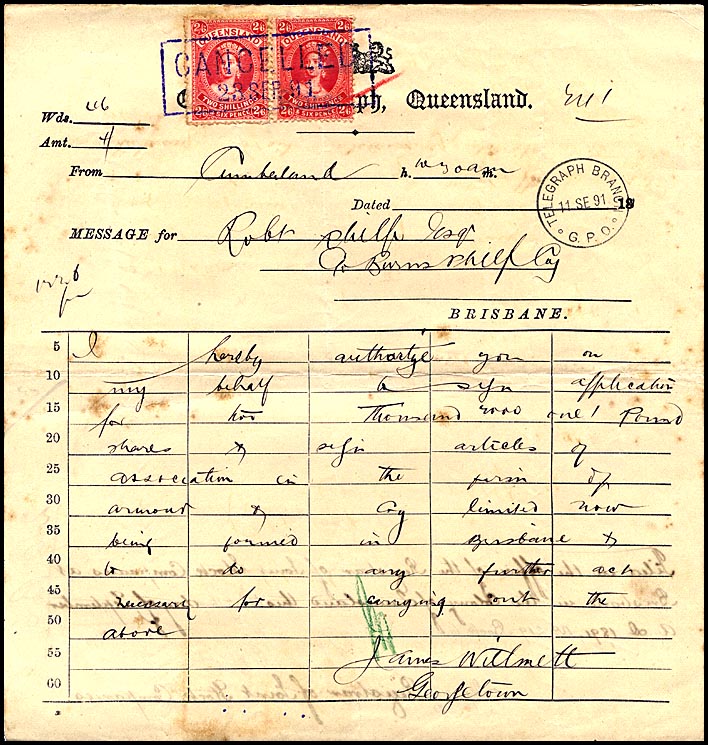 2/6 2/6 2/6 2/6
QUEENSLAND QUEENSLAND
CANCELLED
23 SEP. 91
TWO SHILLINGS TWO SHILLINGS
2/6 & SIX PENCE 2/6 2/6 & SIX PENCE 2/6
ph, Queensland.
Wds. 46
Amt. 4/
From Cumberland h. m.
TELEGRAPH BRANCH
11 SE 91
G. P. O.
Dated 18
MESSAGE for Robt Philp Esqr
C/o Burns Philp Coy
BRISBANE.
5 I hereby authorize you on
10 my behalf to sign application
15 for two thousand 2000 one 1 Pound
20 shares & sign articles of
25 association in the firm of
30 armour & Coy limited now
35 being formed in Brisbane &
40 to do any further act
45 necessary for carrying out the
50 above
55 James Willmett
60 Georgetown